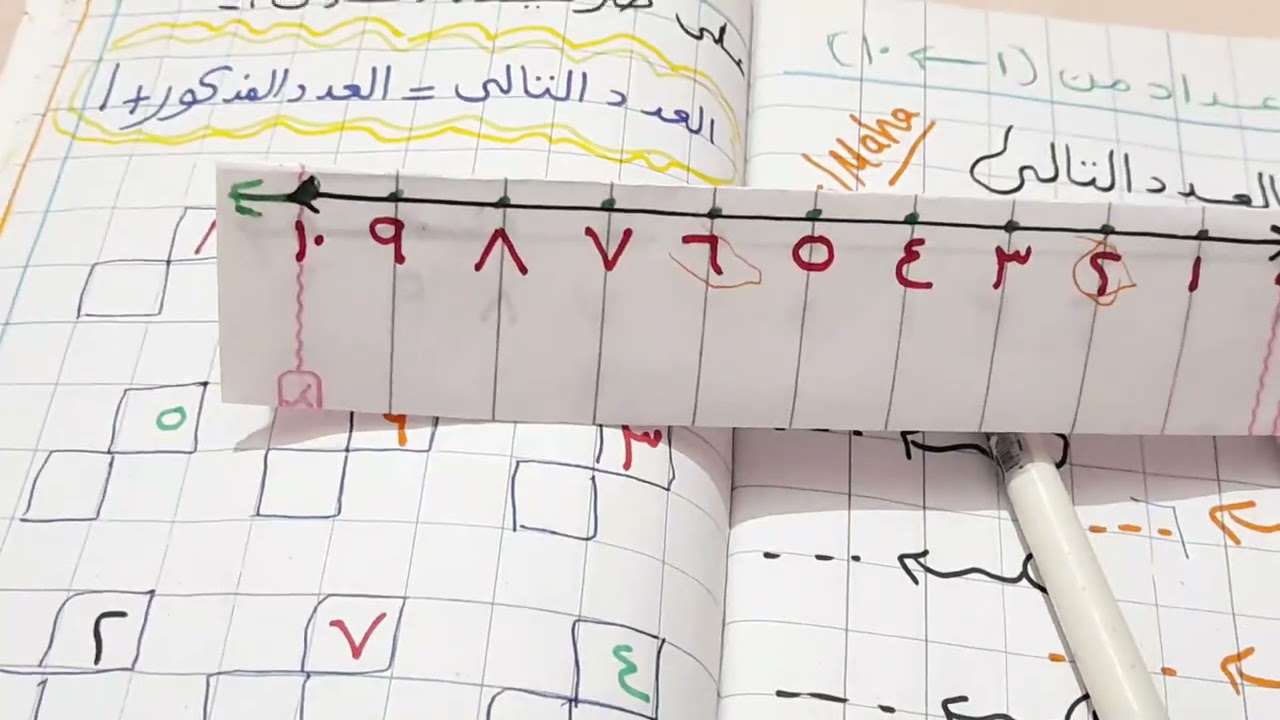 عداد من (١ ← ١٠)
Maha
العدد التالى
العدد التالى = العدد المذكور + ١
١ ٢ ٣ ٤ ٥ ٦ ٧ ٨ ٩ ١٠
٣ ٩ ٥
٤ ٧ ٢